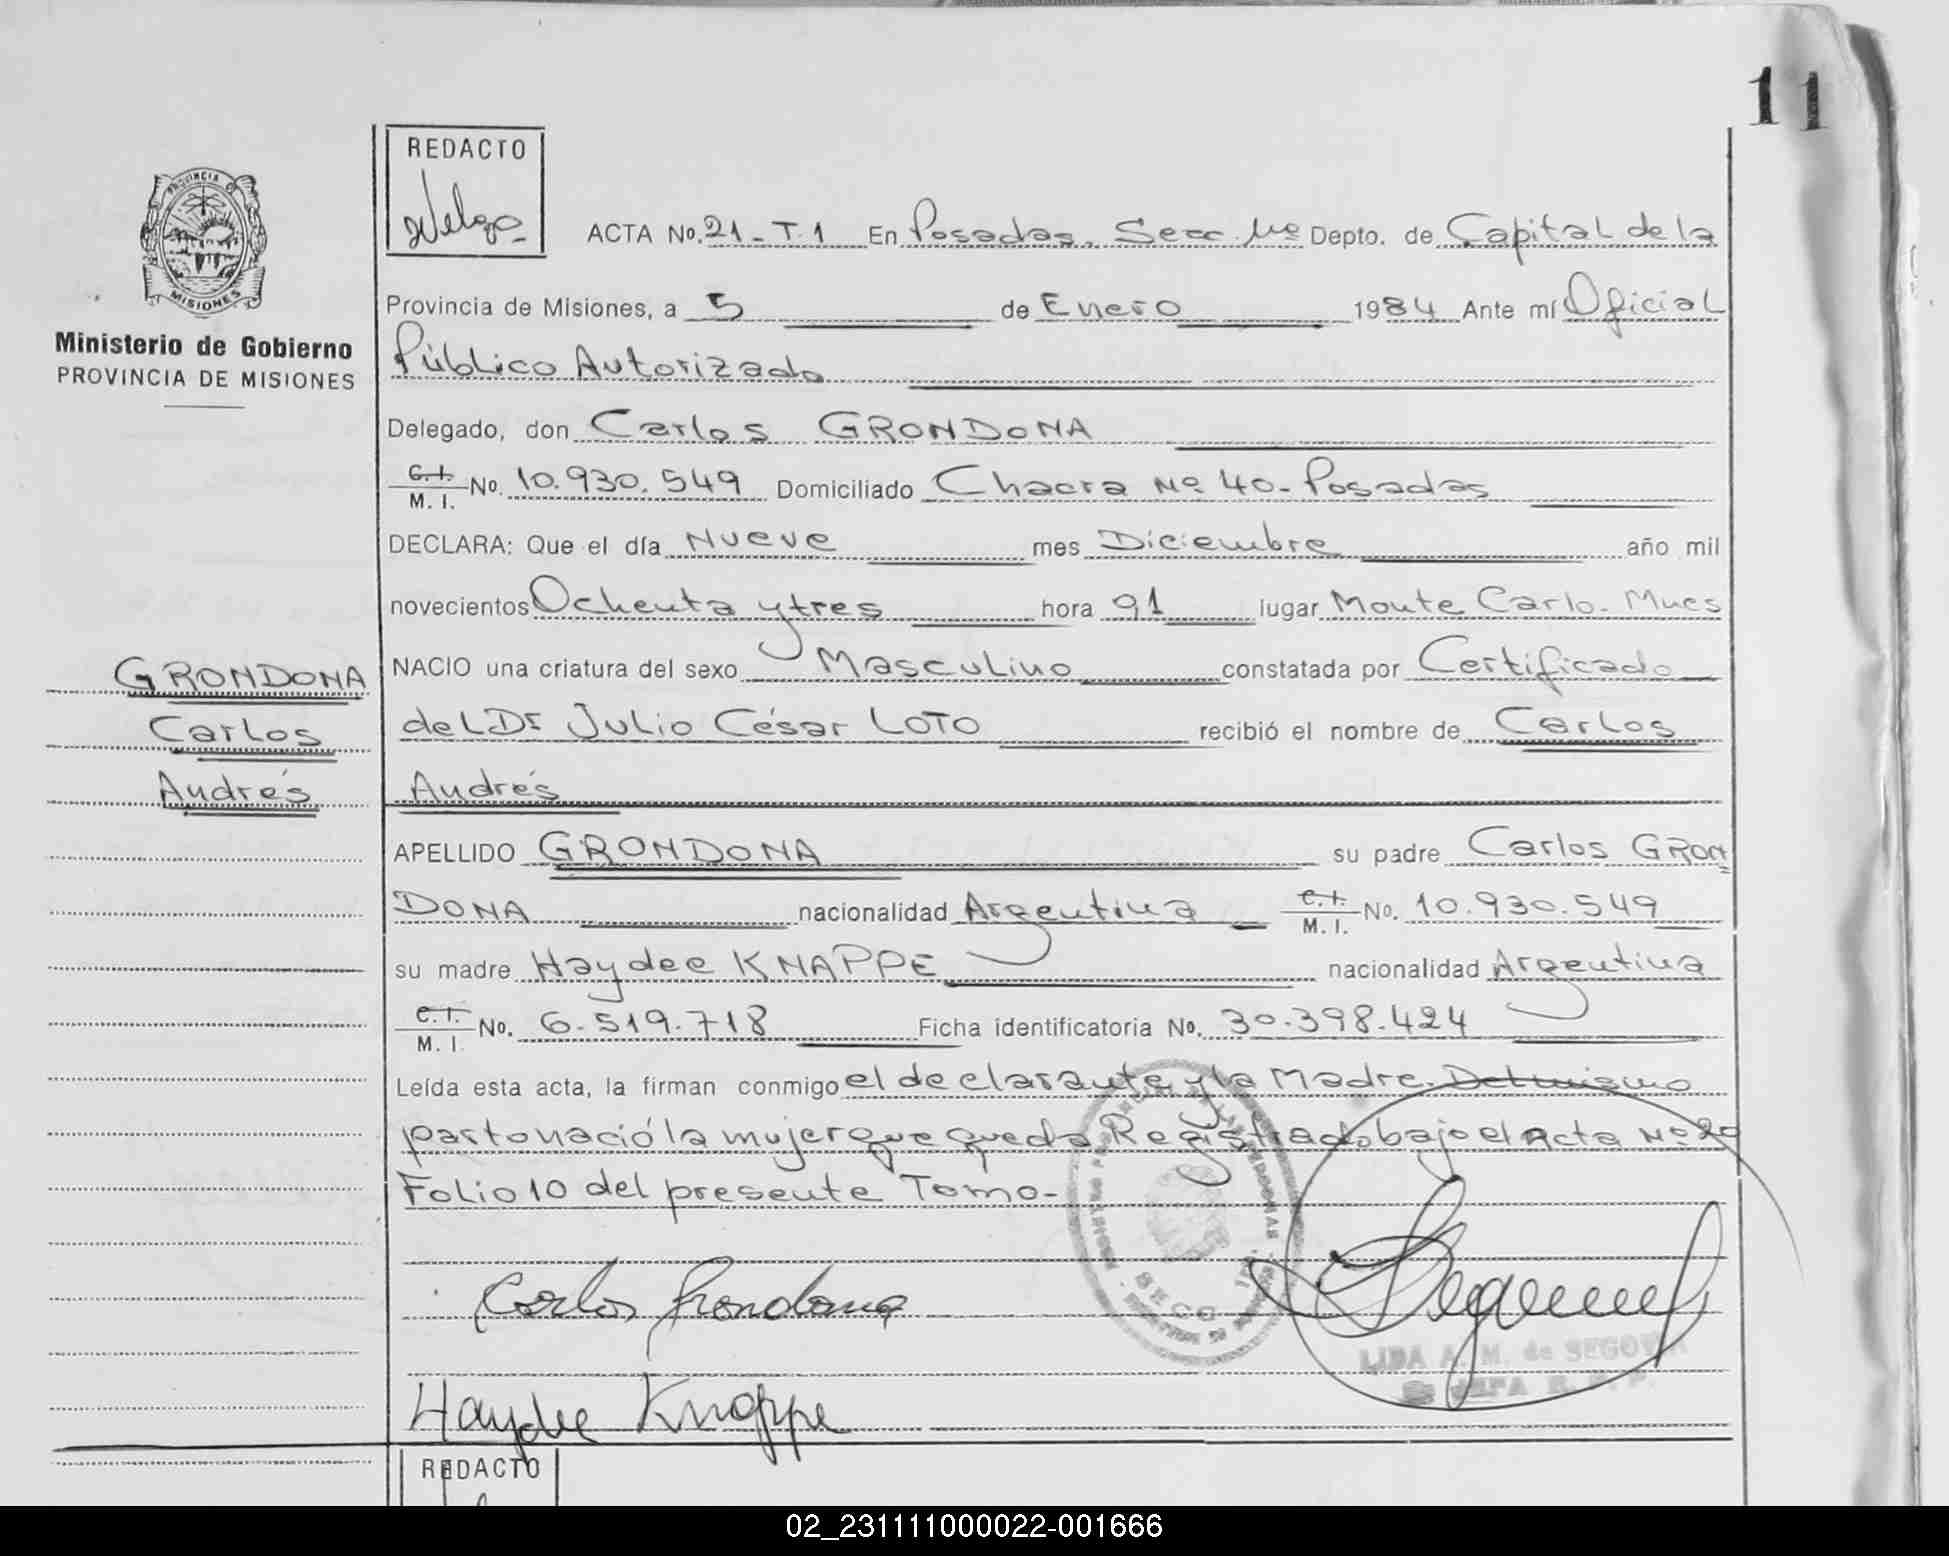 11
REDACTO
ACTA No. 21 - T. 1 En Posadas, Secc. 1ª Depto. de Capital de la
PROVINCIA DE
MISIONES
Provincia de Misiones, a 5 de Enero 1984 Ante mí Oficial
Ministerio de Gobierno
PROVINCIA DE MISIONES
Público Autorizado
Delegado, don Carlos GRONDONA
C.I. M.I. No. 10.930.549 Domiciliado Chacra Nº 40 - Posadas
DECLARA: Que el día Nueve mes Diciembre año mil
novecientos Ochenta y tres hora 21 lugar Monte Carlo. Mnes
NACIO una criatura del sexo Masculino constatada por Certificado
del Dr Julio César LOTO recibió el nombre de Carlos
Andrés
GRONDONA
Carlos
Andrés
APELLIDO GRONDONA su padre Carlos GRON
DONA nacionalidad Argentina C.I. M.I. No. 10.930.549
su madre Haydee KNAPPE nacionalidad Argentina
C.I. M.I. No. 6.519.718 Ficha identificatoria No. 30.398.424
Leída esta acta, la firman conmigo el declarante y la Madre. Del mismo
parto nació la mujer que queda Registrada bajo el Acta Nº 20
Folio 10 del presente Tomo.-
Carlos Grondona
LIDA A. M. de SEGOVIA
JEFA R. P. P.
Haydee Knappe
REDACTO
02_231111000022-001666